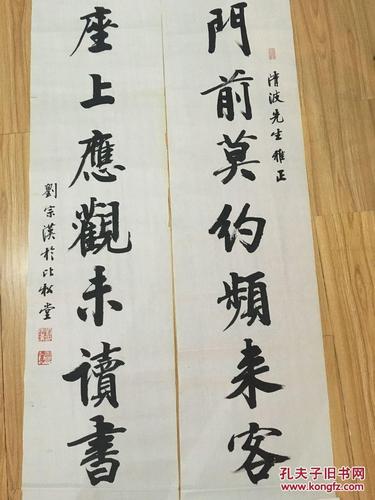 門前莫約頻来客
清波先生雅正
座上應觀未讀書
劉宗漢於比松堂
孔夫子旧书网
www.kongfz.com